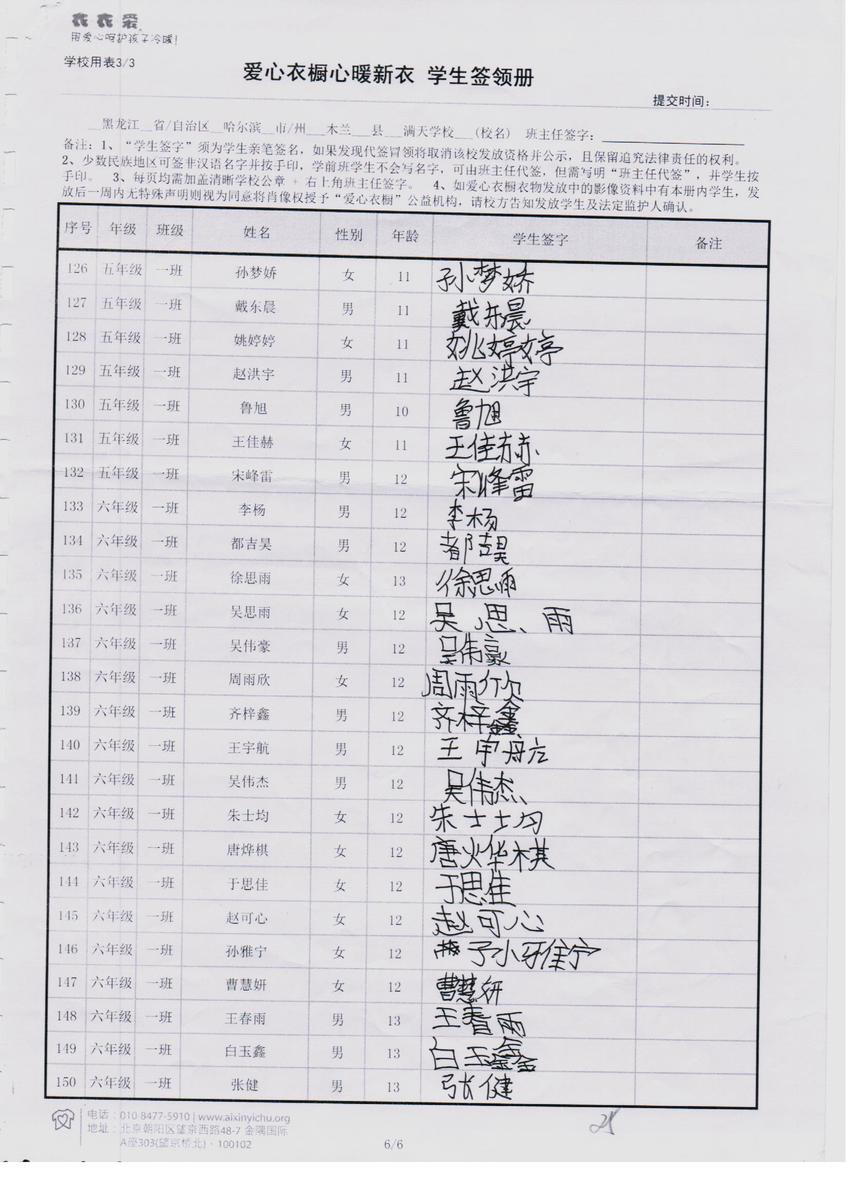 衣衣爱
用爱心呵护孩子冷暖!
学校用表3/3
爱心衣橱心暖新衣 学生签领册
提交时间:
黑龙江 省/自治区 哈尔滨 市/州 木兰 县 满天学校 (校名) 班主任签字:
备注:1、“学生签字”须为学生亲笔签名,如果发现代签冒领将取消该校发放资格并公示,且保留追究法律责任的权利。
2、少数民族地区可签非汉语名字并按手印,学前班学生不会写名字,可由班主任代签,但需写明“班主任代签”,并学生按
手印。 3、每页均需加盖清晰学校公章 + 右上角班主任签字。 4、如爱心衣橱衣物发放中的影像资料中有本册内学生,发
放后一周内无特殊声明则视为同意将肖像权授予“爱心衣橱”公益机构,请校方告知发放学生及法定监护人确认。
序号 年级 班级 姓名 性别 年龄 学生签字 备注
126 五年级 一班 孙梦娇 女 11 孙梦娇
127 五年级 一班 戴东晨 男 11 戴东晨
128 五年级 一班 姚婷婷 女 11 姚婷婷
129 五年级 一班 赵洪宇 男 11 赵洪宇
130 五年级 一班 鲁旭 男 10 鲁旭
131 五年级 一班 王佳赫 女 11 王佳赫
132 五年级 一班 宋峰雷 男 12 宋峰雷
133 六年级 一班 李杨 男 12 李杨
134 六年级 一班 都吉昊 男 12 都吉昊
135 六年级 一班 徐思雨 女 13 徐思雨
136 六年级 一班 吴思雨 女 12 吴思雨
137 六年级 一班 吴伟豪 男 12 吴伟豪
138 六年级 一班 周雨欣 女 12 周雨欣
139 六年级 一班 齐梓鑫 男 12 齐梓鑫
140 六年级 一班 王宇航 男 12 王宇航
141 六年级 一班 吴伟杰 男 12 吴伟杰
142 六年级 一班 朱士均 女 12 朱士均
143 六年级 一班 唐烨棋 女 12 唐烨棋
144 六年级 一班 于思佳 女 12 于思佳
145 六年级 一班 赵可心 女 12 赵可心
146 六年级 一班 孙雅宁 女 12 孙雅宁
147 六年级 一班 曹慧妍 女 12 曹慧妍
148 六年级 一班 王春雨 男 13 王春雨
149 六年级 一班 白玉鑫 男 13 白玉鑫
150 六年级 一班 张健 男 13 张健
电话:010-8477-5910 | www.aixinyichu.org
地址:北京朝阳区望京西路48-7 金隅国际
A座303(望京桥北)·100102
6/6
25